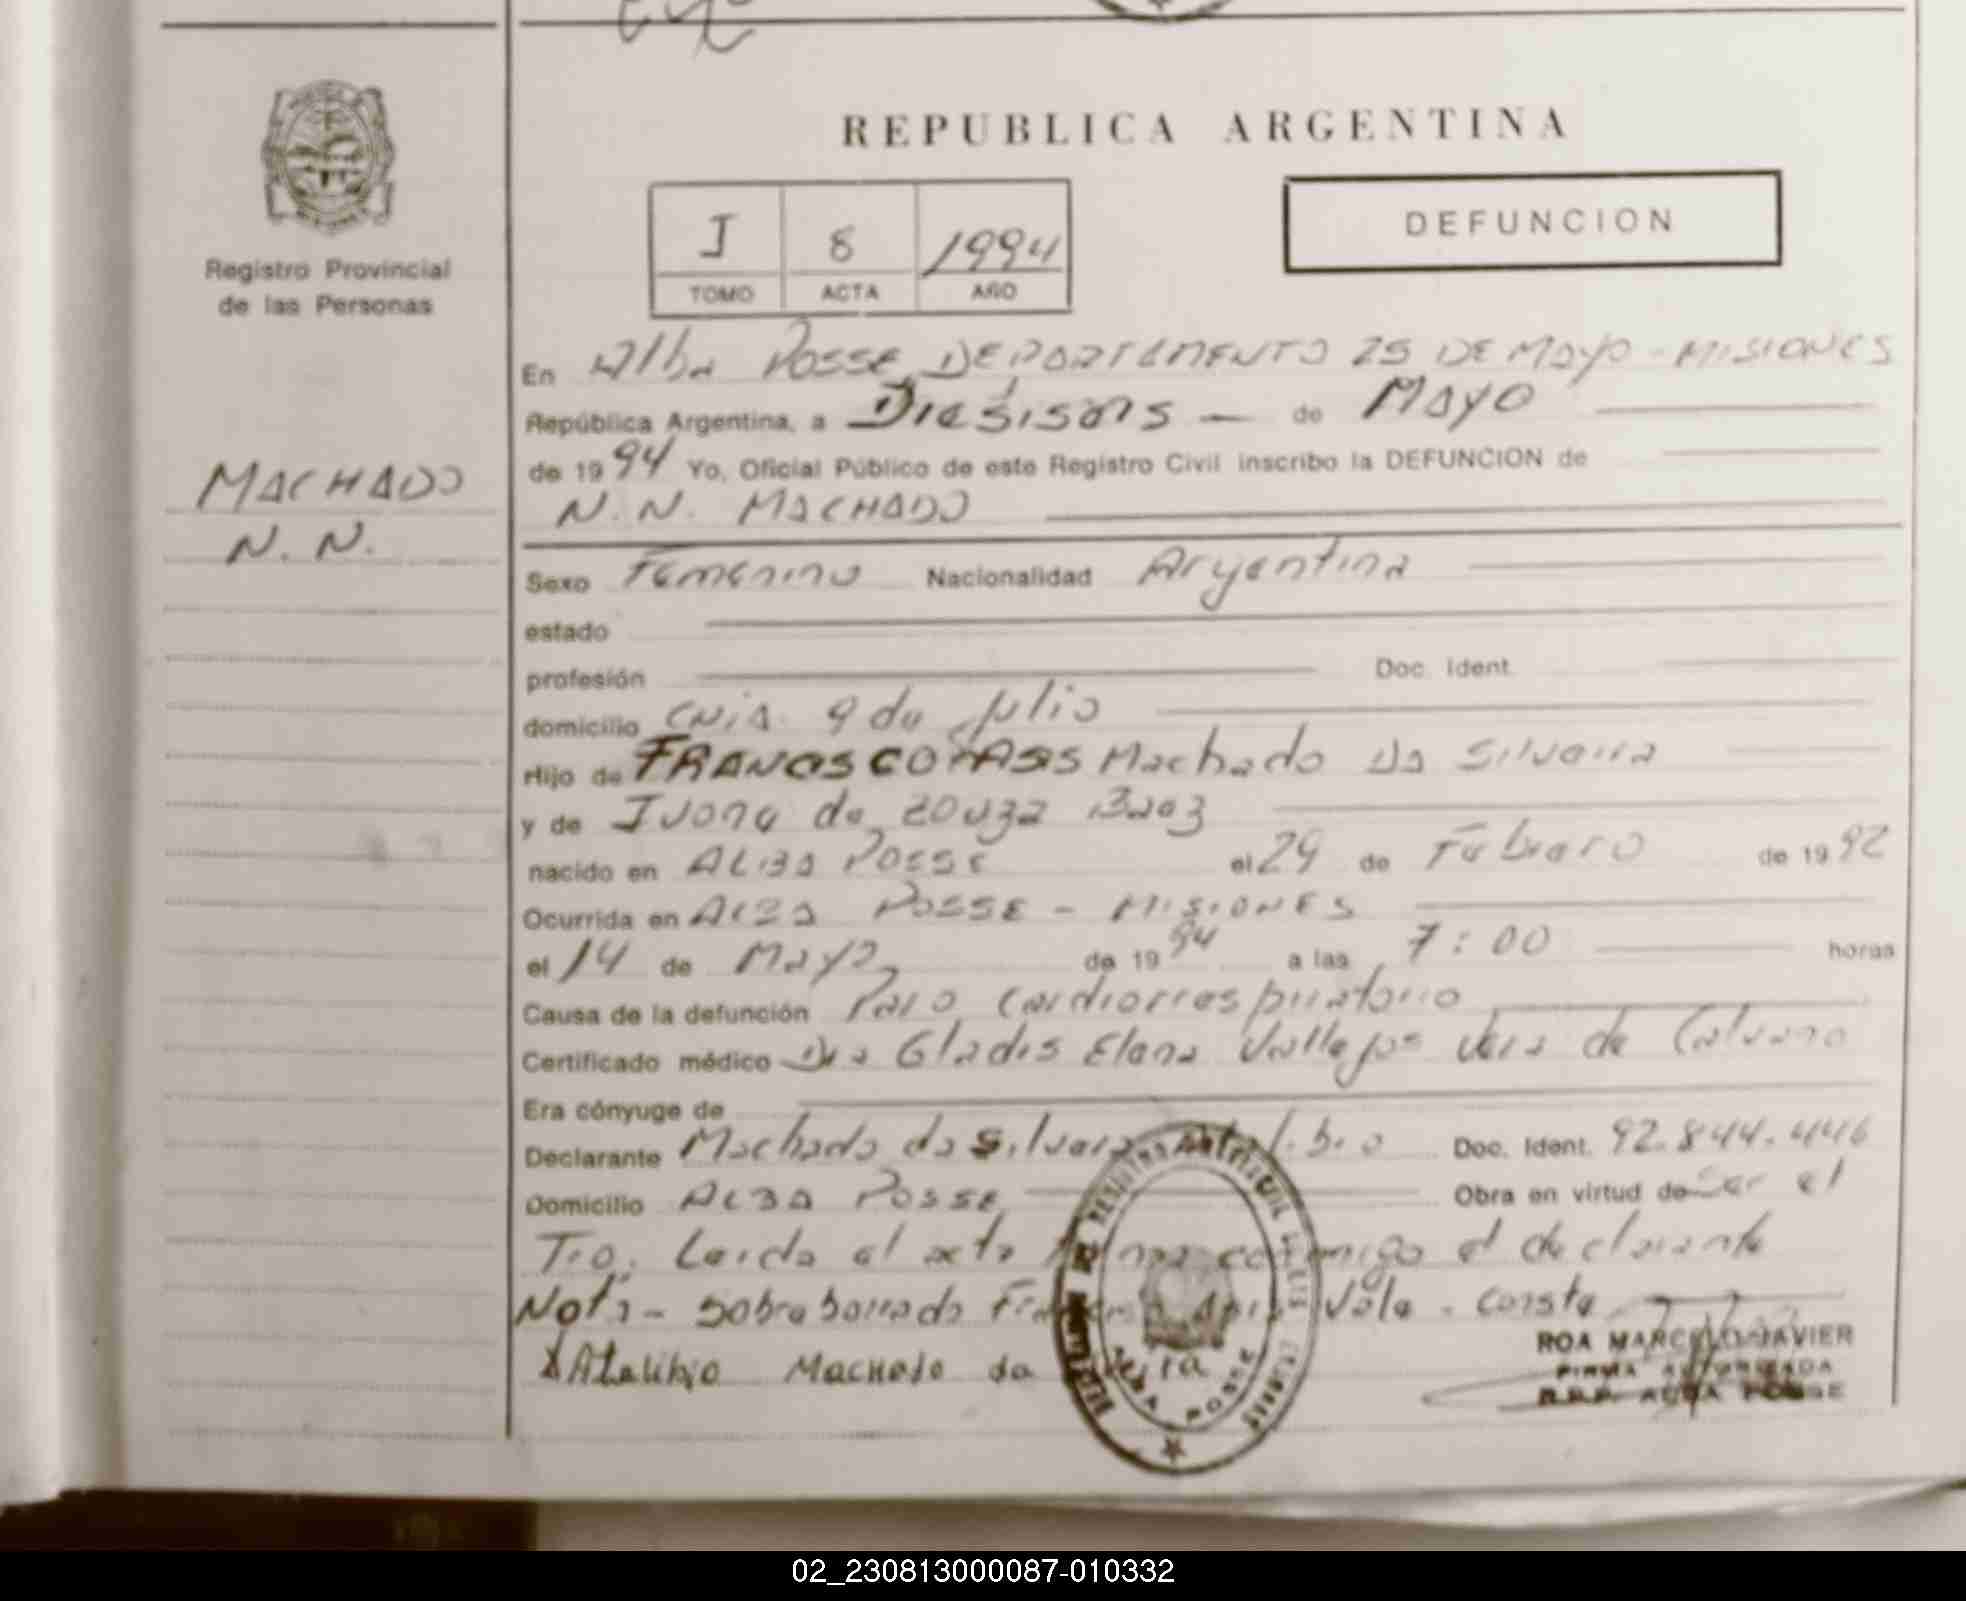 REPUBLICA ARGENTINA
DEFUNCION
I 8 1994
TOMO ACTA AÑO
Registro Provincial
de las Personas
MACHADO
N. N.
En Alba Posse, DEPARTAMENTO 25 DE MAYO - MISIONES
República Argentina, a Diesiseis — de Mayo
de 1994 Yo, Oficial Público de este Registro Civil inscribo la DEFUNCION de
N. N. MACHADO
Sexo Femenino Nacionalidad Argentina
estado
profesión Doc. Ident.
domicilio 9 de Julio
Hijo de FRANCISCO Machado Da Silveira
y de de
nacido en ALBA POSSE el 29 de Febrero de 1992
Ocurrida en ALBA POSSE - MISIONES
el 14 de Mayo de 1994 a las 7:00 horas
Causa de la defunción Paro Cardiorrespiratorio
Certificado médico Dra Gladis Elena Vallejos Vera de
Era cónyuge de
Declarante Machado da Silveira Doc. Ident. 92.844.446
Domicilio ALBA POSSE Obra en virtud de Ser el
Tio. Leida el acta conmigo el declarante
Nota - Sobreborrado Vale. Conste
Atalibio Machado da
ALBA POSSE
ROA MARCELO JAVIER
FIRMA AUTORIZADA
R.P.P. ALBA POSSE
02_230813000087-010332